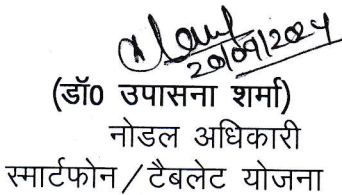 20/09/2024
(डॉ0 उपासना शर्मा)
नोडल अधिकारी
स्मार्टफोन/टैबलेट योजना